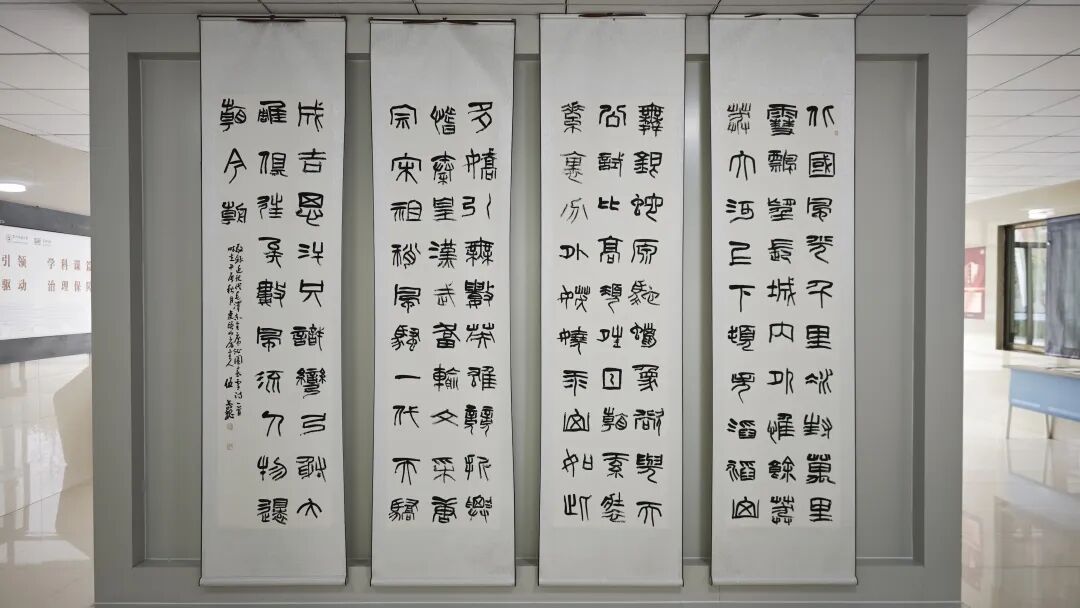 北國風光千里冰封萬里
雪飄望長城內外惟餘莽
莽大河上下頓失滔滔山
舞銀蛇原馳蠟象欲與天
公試比高須晴日看紅裝
素裹分外妖嬈江山如此
多嬌引無數英雄競折腰
惜秦皇漢武略輸文采唐
宗宋祖稍風騷一代天驕
成吉思汗只識彎弓射大
雕俱往矣數風流人物還
看今朝
毛澤东主席沁園春雪詩一首
引领 学科
驱动 治理保障